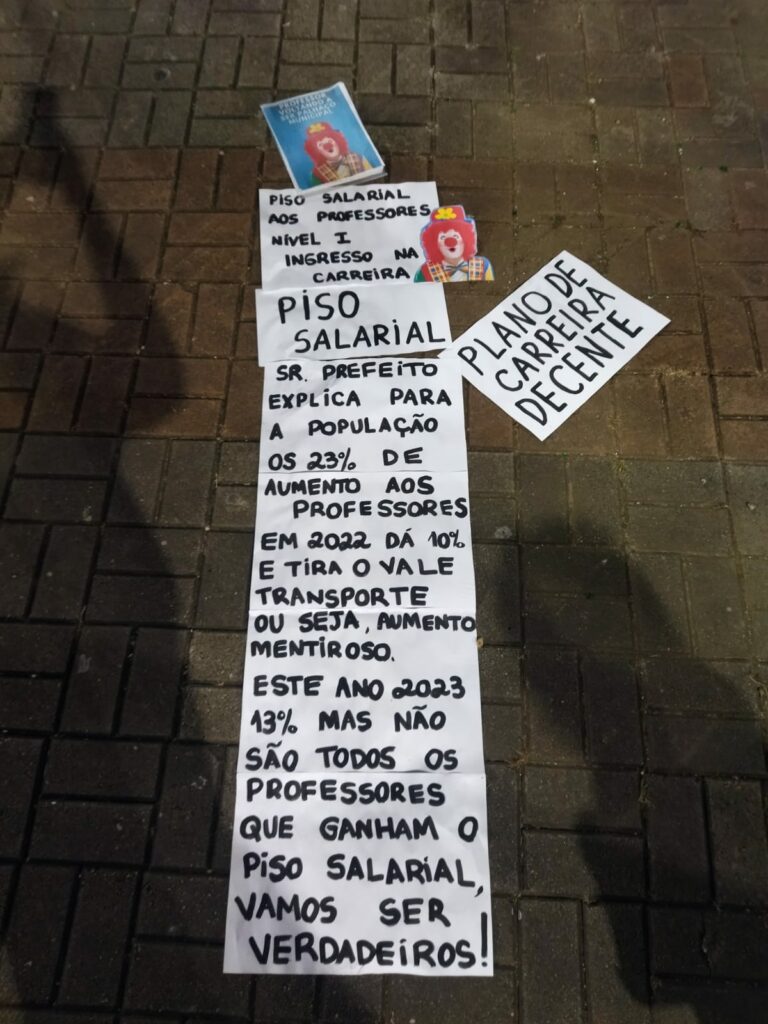 PROFESSOR
VOLTANDO A
SER PALHAÇO
MUNICIPAL
PISO SALARIAL
AOS PROFESSORES
NÍVEL I
INGRESSO NA
CARREIRA
PISO
SALARIAL
PLANO DE
CARREIRA
DECENTE
SR. PREFEITO
EXPLICA PARA
A POPULAÇÃO
OS 23% DE
AUMENTO AOS
PROFESSORES
EM 2022 DÁ 10%
E TIRA O VALE
TRANSPORTE
OU SEJA, AUMENTO
MENTIROSO.
ESTE ANO 2023
13% MAS NÃO
SÃO TODOS OS
PROFESSORES
QUE GANHAM O
PISO SALARIAL,
VAMOS SER
VERDADEIROS!